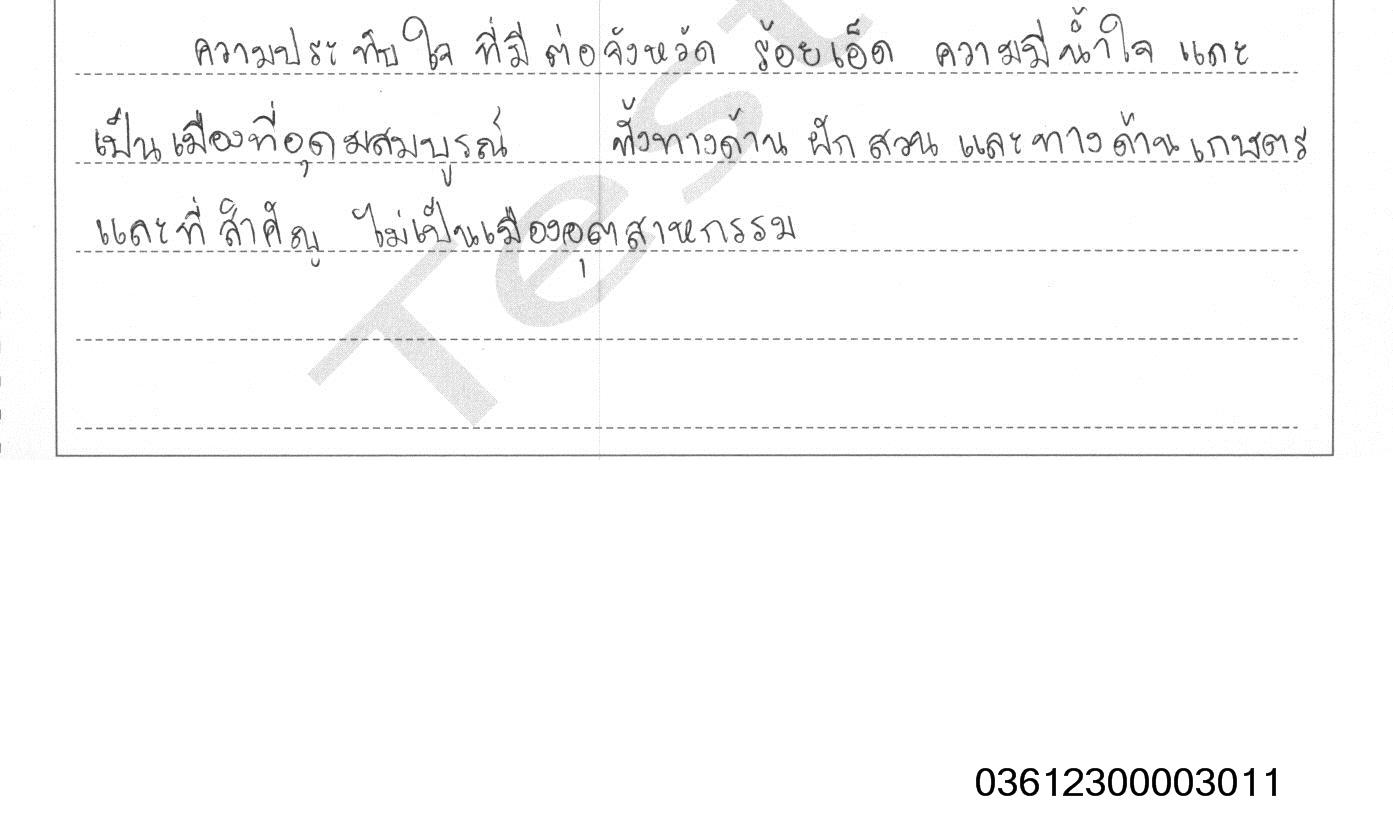 ความประทับใจ ที่มีต่อจังหวัด ร้อยเอ็ด ความมีน้ำใจ และ
เป็นเมืองที่อุดมสมบูรณ์ ทั้งทางด้าน ผัก สวน และทางด้านเกษตร
และที่สำคัญ ไม่เป็นเมืองอุตสาหกรรม
Test
03612300003011